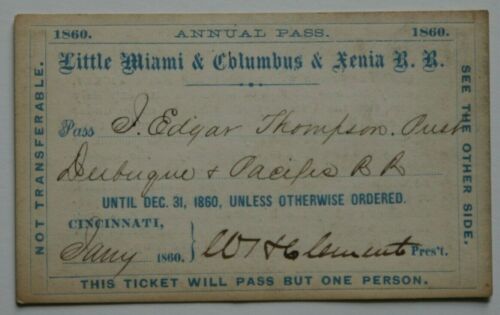 1860. ANNUAL PASS. 1860.
Little Miami & Columbus & Xenia R. R.
Pass J. Edgar Thompson. Prest
Dubuque & Pacific R R
UNTIL DEC. 31, 1860, UNLESS OTHERWISE ORDERED.
CINCINNATI,
Jany 1860. } W H Clement Pres't.
THIS TICKET WILL PASS BUT ONE PERSON.
NOT TRANSFERABLE.
SEE THE OTHER SIDE.